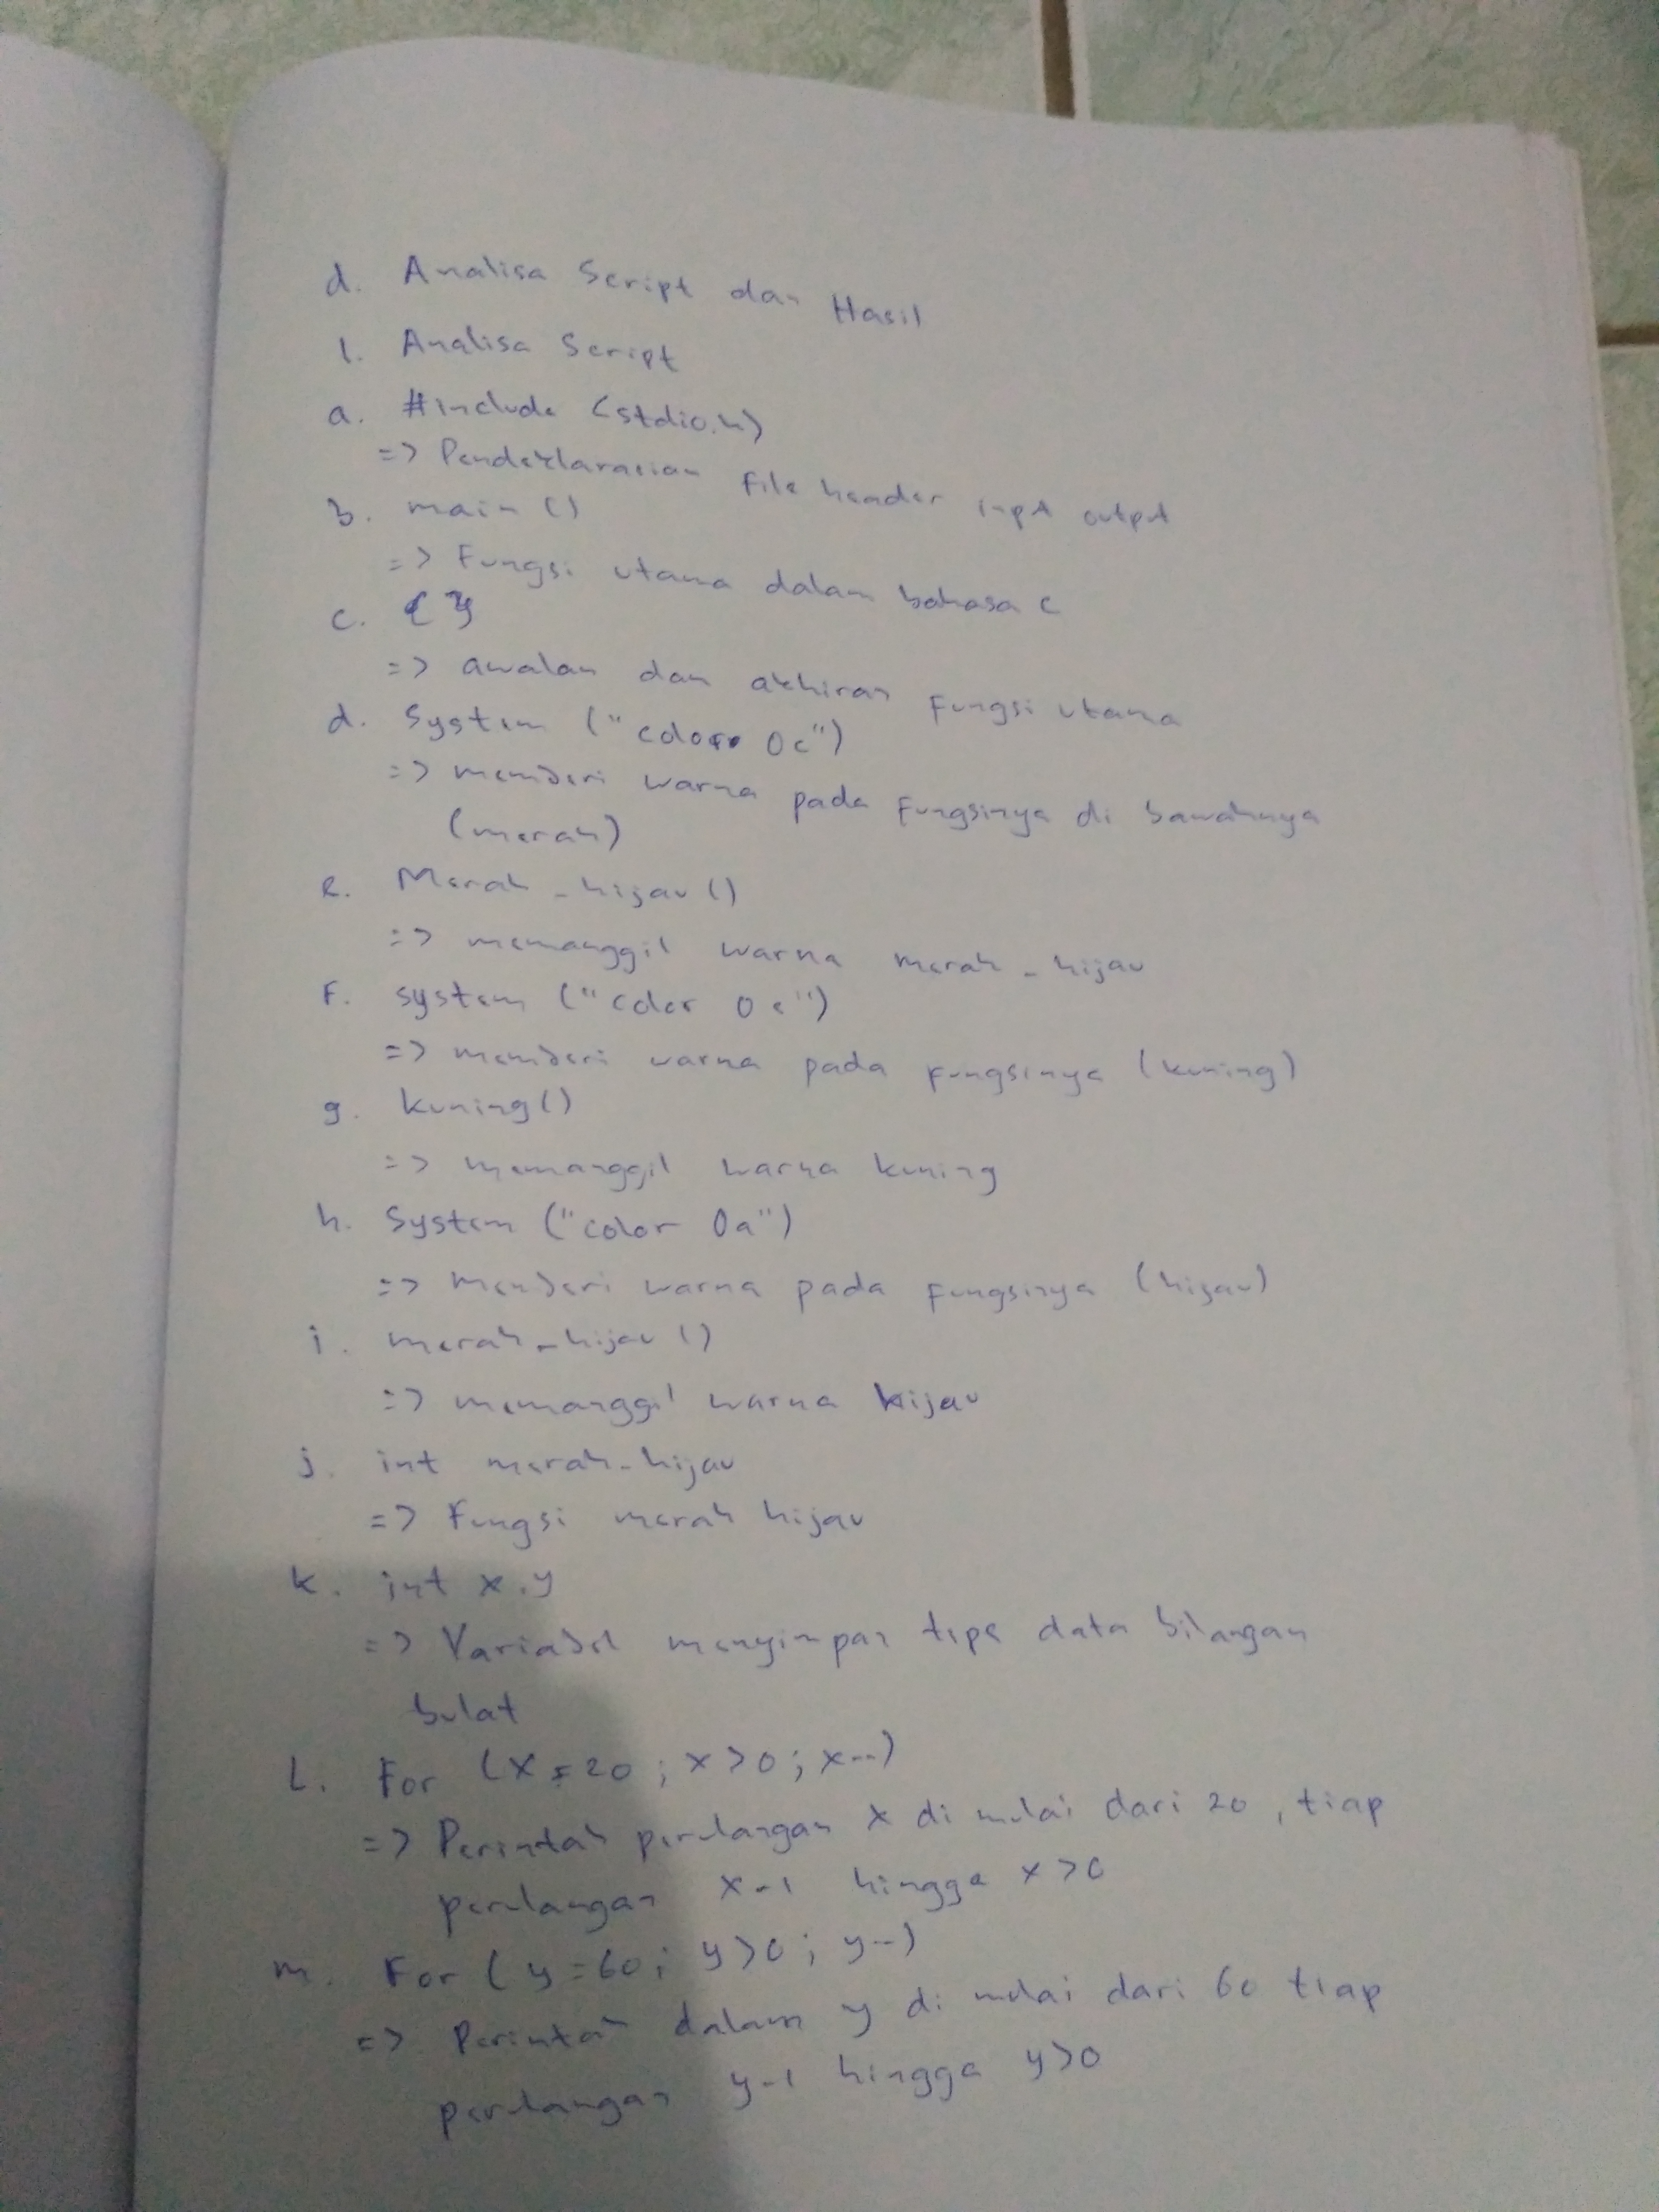 d. Analisa Script dan Hasil
1. Analisa Script
a. #include <stdio.h>
=> Pendeklarasian file header input output
b. main ()
=> Fungsi utama dalam bahasa C
c. { }
=> awalan dan akhiran fungsi utama
d. System ("color 0c")
=> memberi warna pada fungsinya di bawahnya
(merah)
e. Merah_hijau ()
=> memanggil warna merah_hijau
F. system ("color 0e")
=> memberi warna pada fungsinya (kuning)
g. kuning()
=> memanggil warna kuning
h. System ("color 0a")
=> memberi warna pada fungsinya (hijau)
i. merah_hijau ()
=> memanggil warna hijau
j. int merah_hijau
=> Fungsi merah hijau
k. int x,y
=> Variabel menyimpan tipe data bilangan
bulat
L. For (x=20 ; x>0 ; x--)
=> Perintah perulangan x di mulai dari 20, tiap
perulangan x-1 hingga x>0
m. For (y=60; y>0; y--)
=> Perintah dalam y di mulai dari 60 tiap
perulangan y-1 hingga y>0